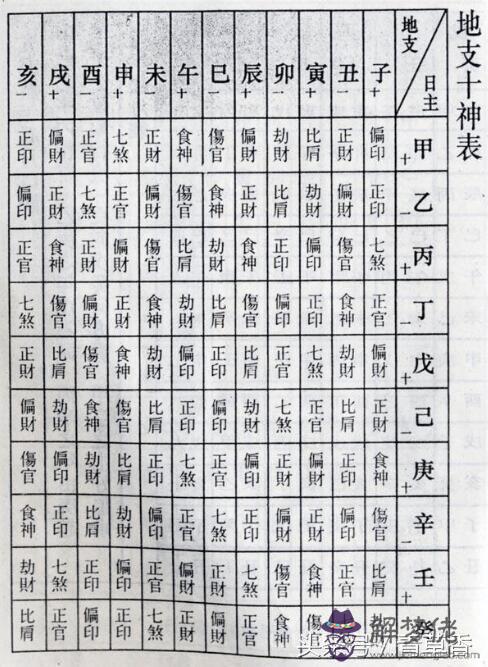 地支十神表
地支 日主 子十 丑一 寅十 卯一 辰十 巳一 午十 未一 申十 酉一 戌十 亥一
甲十 偏印 正財 比肩 劫財 偏財 傷官 食神 正財 七煞 正官 偏財 正印
乙一 正印 偏財 劫財 比肩 正財 食神 傷官 偏財 正官 七煞 正財 偏印
丙十 七煞 傷官 偏印 正印 食神 劫財 比肩 傷官 偏財 正財 食神 正官
丁一 正官 食神 正印 偏印 傷官 比肩 劫財 食神 正財 偏財 傷官 七煞
戊十 偏財 劫財 七煞 正官 比肩 正印 偏印 劫財 食神 傷官 比肩 正財
己一 正財 比肩 正官 七煞 劫財 偏印 正印 比肩 傷官 食神 劫財 偏財
庚十 食神 正印 偏財 正財 偏印 正官 七煞 正印 比肩 劫財 偏印 傷官
辛一 傷官 偏印 正財 偏財 正印 七煞 正官 偏印 劫財 比肩 正印 食神
壬十 比肩 正官 食神 傷官 七煞 正財 偏財 正官 偏印 正印 七煞 劫財
癸 傷官 食神 正官 偏財 正財 七煞 正印 偏印 正官 比肩
解梦佬